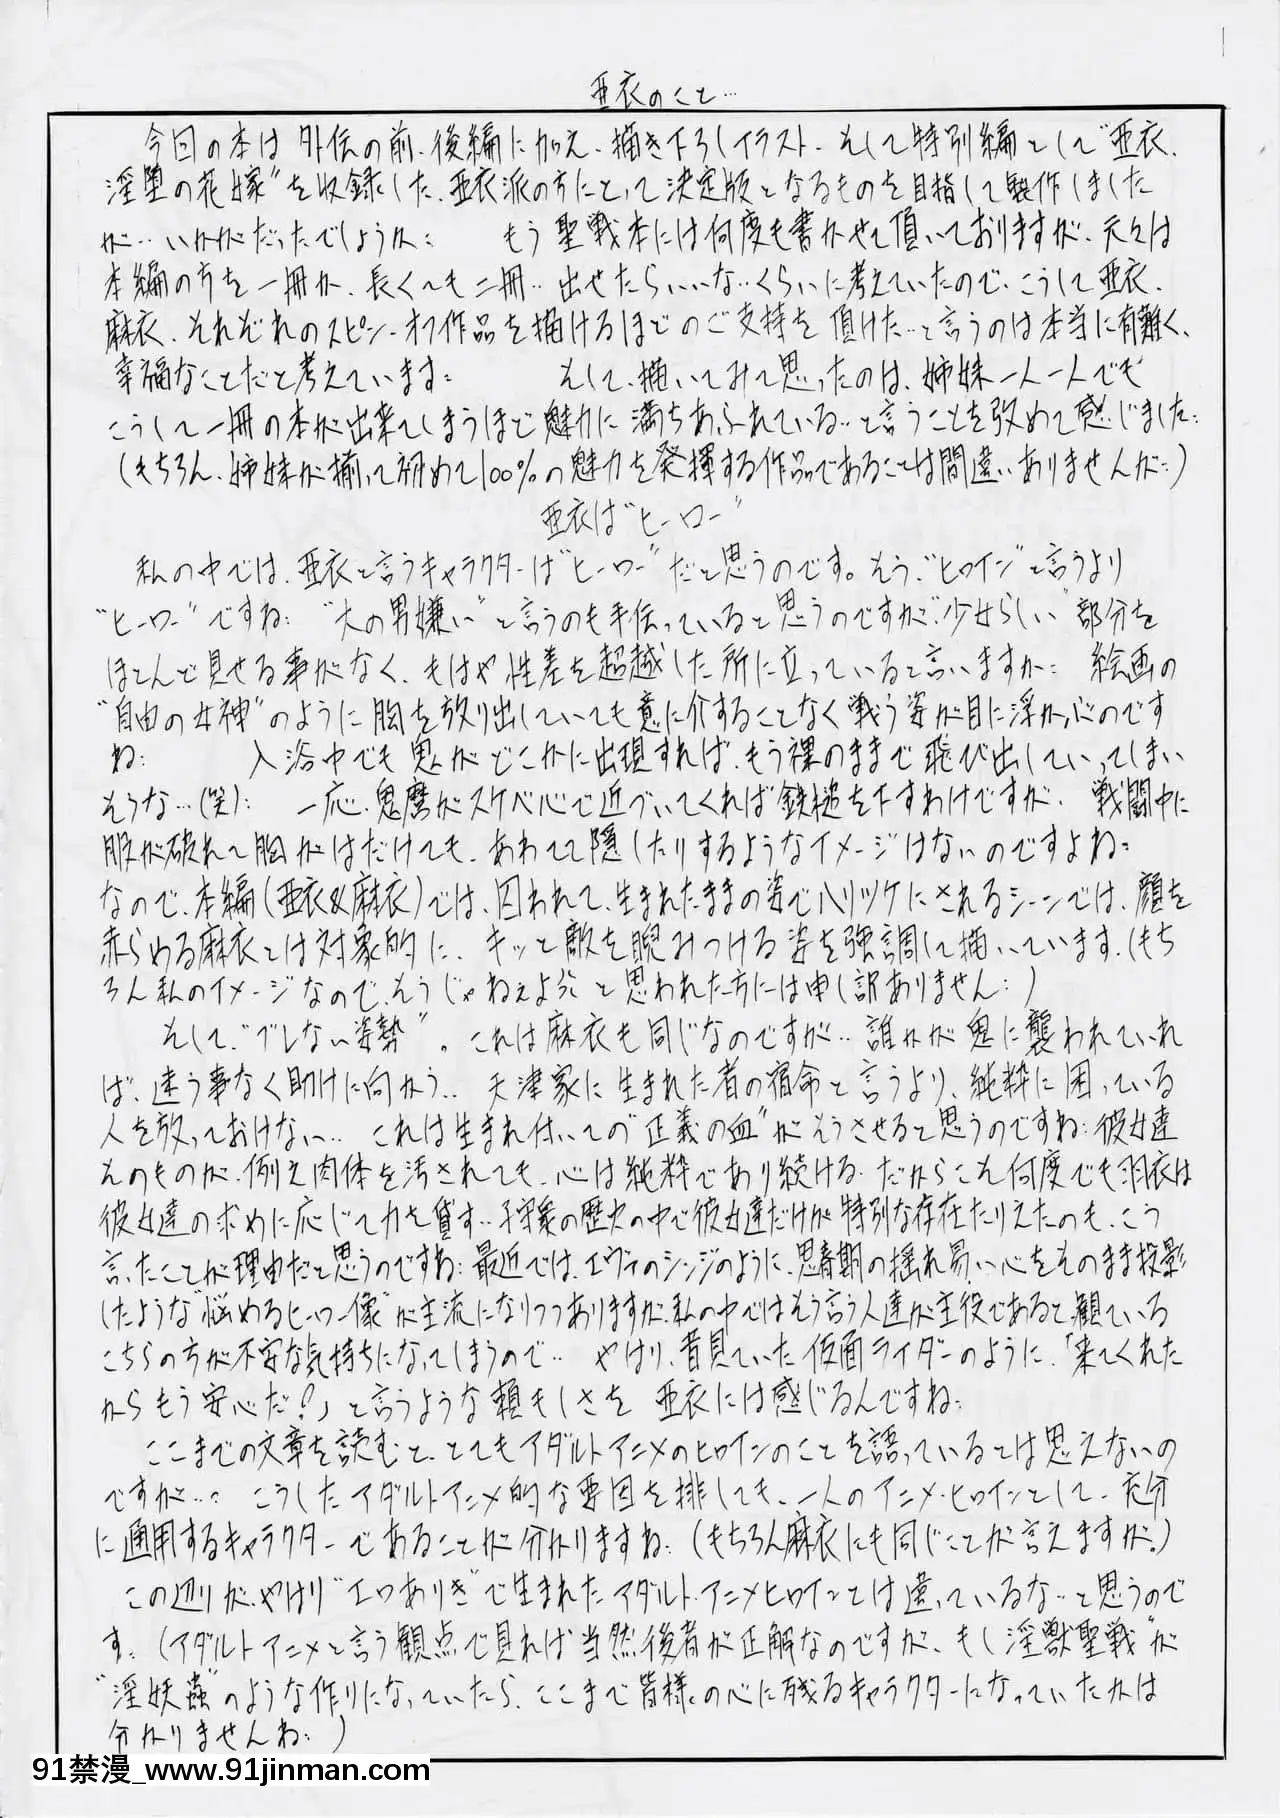 亜衣のこと…
今回の本は外伝の前、後編に加え、描き下ろしイラスト、そして特別編として“亜衣、
淫堕の花嫁”を収録した、亜衣派の方にとって決定版となるものを目指して製作しました
が‥いかがだったでしょうか: もう聖戦本には何度も書かせて頂いておりますが、元々は
本編の方を一冊か、長くても二冊‥出せたらいいな‥くらいに考えていたので、こうして亜衣、
麻衣、それぞれのスピン・オフ作品を描けるほどのご支持を頂けた‥と言うのは本当に有難く、
幸福なことだと考えています: そして、描いてみて思ったのは、姉妹一人一人でも
こうして一冊の本が出来てしまうほど魅力に満ちあふれている‥と言うことを改めて感じました:
(もちろん、姉妹が揃って初めて100%の魅力を発揮する作品であることは間違いありませんが:)
亜衣は“ヒーロー”
私の中では、亜衣と言うキャラクターは“ヒーロー”だと思うのです。そう、“ヒロイン”と言うより
“ヒーロー”ですね: “大の男嫌い”と言うのも手伝っていると思うのですが“少女らしい”部分を
ほとんど見せる事がなく、もはや性差を超越した所に立っていると言いますか: 絵画の
“自由の女神”のように胸を放り出していても意に介することなく戦う姿が目に浮かぶのです
ね: 入浴中でも鬼がどこかに出現すれば、もう裸のままで飛び出していってしまい
そうな…(笑): 一応、鬼麿がスケベ心で近づいてくれば鉄槌を下すわけですが、戦闘中に
服が破れて胸がはだけても、あわてて隠したりするようなイメージはないのですよね:
なので、本編(亜衣&麻衣)では、囚われて、生まれたままの姿でハリツケにされるシーンでは、顔を
赤らめる麻衣とは対象的に、キッと敵を睨みつける姿を強調して描いています、(もち
ろん私のイメージなので、そうじゃねえよ‥と思われた方には申し訳ありません:)
そして、“ブレない姿勢”。これは麻衣も同じなのですが‥誰かが鬼に襲われていれ
ば、迷う事なく助けに向かう‥天津家に生まれた者の宿命と言うより、純粋に困っている
人を放っておけない‥これは生まれ付いての“正義の血”がそうさせると思うのですね:彼女達
そのものが、例え肉体を汚されても、心は純粋であり続ける、だからこそ何度でも羽衣は
彼女達の求めに応じて力を貸す‥子守衆の歴史の中で彼女達だけが特別な存在たりえたのも、こう
言ったことが理由だと思うのですね:最近では、エヴァのシンジのように、思春期の揺れ易い心をそのまま投影
したような“悩めるヒーロー像”が主流になりつつありますが、私の中ではそう言う人達が主役であると、観ている
こちらの方が不安な気持ちになってしまうので‥やはり、昔見ていた仮面ライダーのように、「来てくれた
からもう安心だ!」と言うような頼もしさを亜衣には感じるんですね:
ここまでの文章を読むと、とてもアダルトアニメのヒロインのことを語っているとは思えないの
ですが…: こうしたアダルトアニメ的な要因を排しても、一人のアニメ・ヒロインとして、充分
に通用するキャラクターであることが分かりますね:(もちろん麻衣にも同じことが言えますが。)
この辺りが、やはり“エロありき”で生まれたアダルト・アニメヒロインとは違っているな‥と思うので
す:(アダルトアニメと言う観点で見れば当然後者が正解なのですが、もし“淫獣聖戦”が
“淫妖蟲”のような作りになっていたら、ここまで皆様の心に残るキャラクターになっていたかは
分かりませんね:)
91禁漫_www.91jinman.com